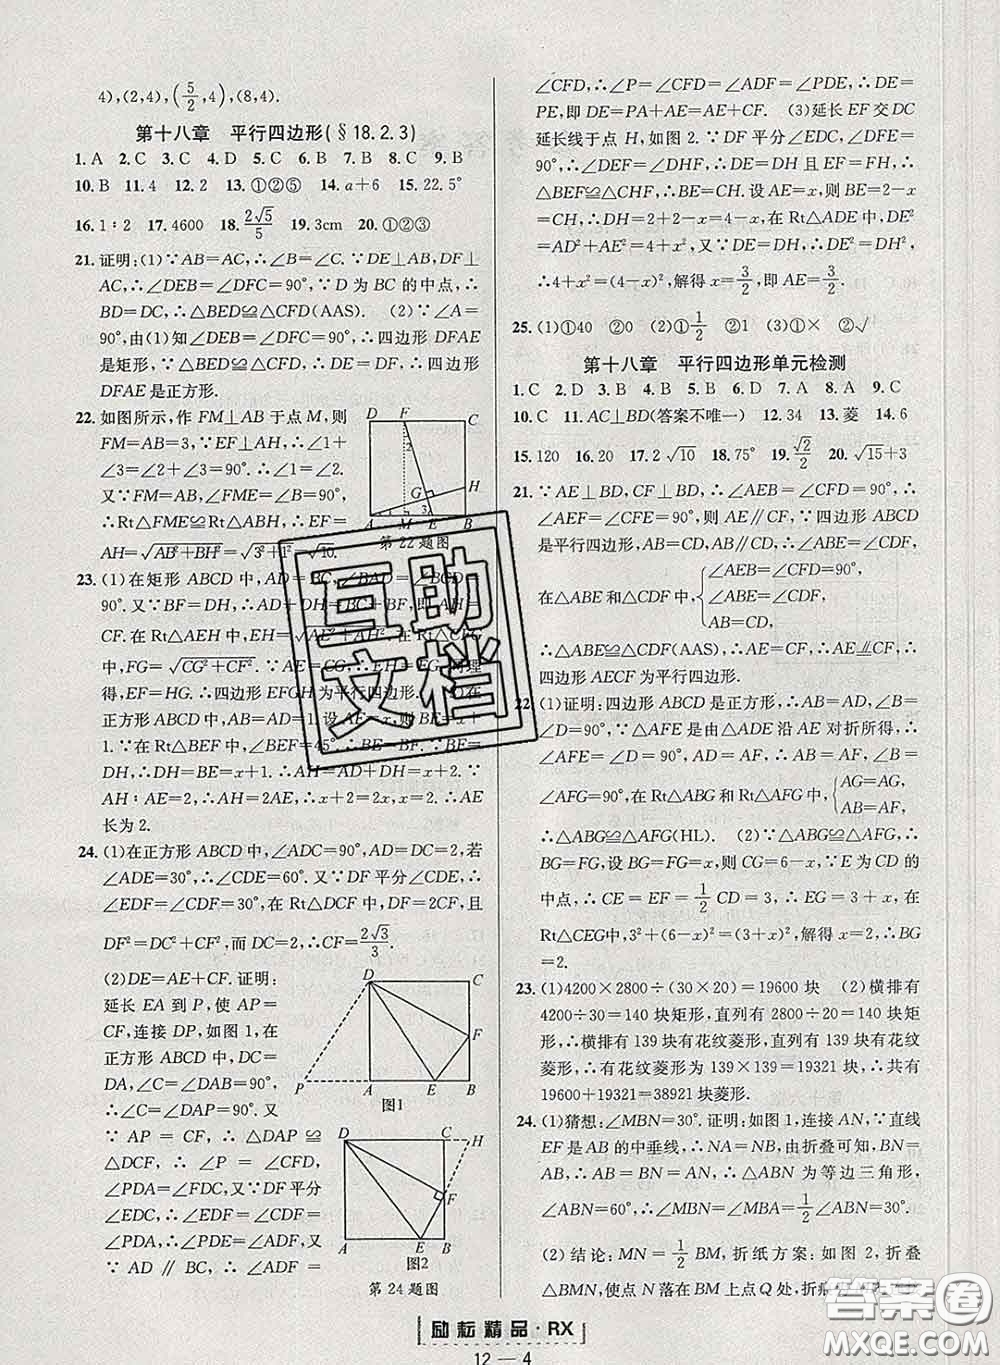 4),(2,4),(5/2,4),(8,4).
第十八章 平行四边形(§18.2.3)
1.A 2.C 3.C 4.D 5.C 6.C 7.B 8.C 9.B
10.B 11.4 12.2 13.①②⑤ 14.a+6 15.22.5°
16.1∶2 17.4600 18.2√5/5 19.3cm 20.①②③
21.证明:(1)∵AB=AC,∴∠B=∠C.∵DE⊥AB,DF⊥
AC,∴∠DEB=∠DFC=90°,∵D为BC的中点,∴
BD=DC,∴△BED≌△CFD(AAS). (2)∵∠A=
90°,由(1)知∠DEB=∠DFC=90°,∴四边形DFAE
是矩形,∵△BED≌△CFD,∴DE=DF,∴四边形
DFAE是正方形.
22.如图所示,作FM⊥AB于点M,则
FM=AB=3,∵EF⊥AH,∴∠1+
∠3=∠2+∠3=90°.∴∠1=∠2.
又∵FM=AB,∠FME=∠B=90°.
∴Rt△FME≌Rt△ABH,∴EF=
AH=√AB²+BH²=√3²+1²=√10.
D F C
2
G H
1 3
A M E B
第22题图
23.(1)在矩形ABCD中,AD=BC,∠BAD=∠BCD=
90°.又∵BF=DH,∴AD+DH=BC+BF,∴AH=
CF.在Rt△AEH中,EH=√AE²+AH².在Rt△CFG
中,FG=√CG²+CF².∵AE=CG,∴EH=FG.同理
得,EF=HG.∴四边形EFGH为平行四边形. (2)在
正方形ABCD中,AB=AD=1.设AE=x,则BE=x+
1.∵在Rt△BEF中,∠BEF=45°.∴BE=BF.∵BF=
DH,∴DH=BE=x+1.∴AH=AD+DH=x+2.∵
AH∶AE=2,∴AH=2AE,∴x+2=2x.∴x=2.∴AE
长为2.
24.(1)在正方形ABCD中,∠ADC=90°,AD=DC=2,若
∠ADE=30°,∴∠CDE=60°.又∵DF平分∠CDE,
∴∠EDF=∠CDF=30°,在Rt△DCF中,DF=2CF,且
DF²=DC²+CF²,而DC=2,∴CF=2√3/3.
(2)DE=AE+CF.证明:
延长EA到P,使AP=
CF,连接DP,如图1,在
正方形ABCD中,DC=
DA,∠C=∠DAE=90°,
∴∠C=∠DAP=90°.又
∵AP=CF,∴△DAP≌
△DCF,∴∠P=∠CFD,
∠PDA=∠CDF,又∵DF平分
∠EDC,∴∠EDF=∠CDF=
∠PDA,∴∠PDE=∠ADF,又
∵AD∥BC,∴∠ADF=
D C
F
P A E B
图1
D C H
F
A E B
图2
第24题图
∠CFD,∴∠P=∠CFD=∠ADF=∠PDE,∴DE=
PE,即DE=PA+AE=AE+CF. (3)延长EF交DC
延长线于点H,如图2.∵DF平分∠EDC,∠DFE=
90°,∴∠DFE=∠DFH,∴DE=DH,EF=HF,∴
△BEF≌△CHF,∴BE=CH.设AE=x,则BE=2-x
=CH,∴DH=2+2-x=4-x,在Rt△ADE中,DE²=
AD²+AE²=4+x²,又∵DE=DH=4-x,
∴4+x²=(4-x)²,解得x=3/2,即AE=3/2.
25.(1)①40 ②0 (2)①1/2 ②1 (3)①× ②√
第十八章 平行四边形单元检测
1.C 2.D 3.B 4.B 5.B 6.D 7.A 8.A 9.C
10.C 11.AC⊥BD(答案不唯一) 12.34 13.菱 14.6
15.120 16.20 17.2√10 18.75° 19.√2/2 20.√15+3
21.∵AE⊥BD,CF⊥BD,∴∠AEB=∠CFD=90°,∴
∠AEF=∠CFE=90°,则AE∥CF,∵四边形ABCD
是平行四边形,AB=CD,AB∥CD,∴∠ABE=∠CDF,
在△ABE和△CDF中,{∠AEB=∠CFD=90°,
∠ABE=∠CDF,
AB=CD,
∴△ABE≌△CDF(AAS),∴AE=CF,∴AE∥CF,∴
四边形AECF为平行四边形.
22.(1)证明:四边形ABCD是正方形,∴∠B=∠D=
90°,AD=AB,∵△AFE是由△ADE沿AE对折所得,∴
∠AFE=∠ADE=90°,AF=AD,∴AF=AB,∠B=
∠AFG=90°,在Rt△ABG和Rt△AFG中,{AG=AG,
AB=AF,
∴△ABG≌△AFG(HL). (2)∵△ABG≌△AFG,∴
BG=FG,设BG=FG=x,则GC=6-x;∵E为CD的
中点,∴CE=EF=1/2CD=3,∴EG=3+x,在
Rt△CEG中,3²+(6-x)²=(3+x)²,解得x=2,∴BG
=2.
23.(1)4200×2800÷(30×20)=19600块 (2)横排有
4200÷30=140块矩形,直列有2800÷20=140块矩
形,∴横排有139块有花纹菱形,直列有139块有花纹
菱形,∴有花纹菱形为139×139=19321块,∴共有
19600+19321=38921块菱形.
24.(1)猜想:∠MBN=30°.证明:如图1,连接AN,∵直线
EF是AB的中垂线,∴NA=NB,由折叠可知,BN=
AB,∴AB=BN=AN,∴△ABN为等边三角形,
∠ABN=60°,∴∠MBN=∠ABM=1/2∠ABN=30°.
(2)结论:MN=1/2BM,折纸方案:如图2,折叠
△BMN,使点N落在BM上点Q处,
励耘精品·RX
12—4
互助
文档
答案圈
MXQE.COM